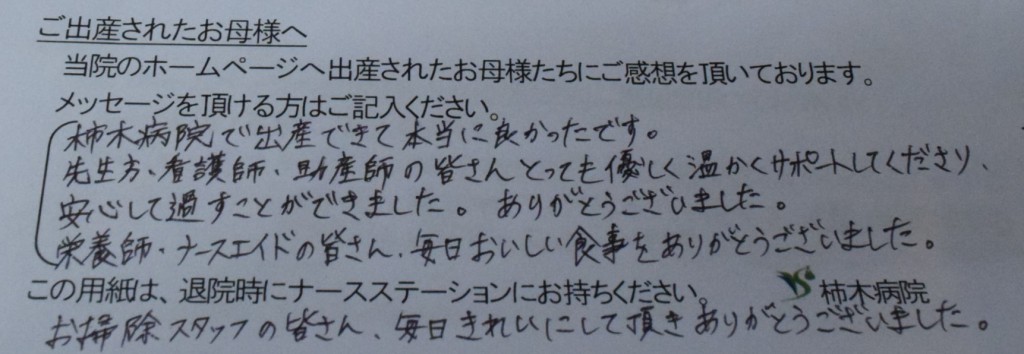 ご出産されたお母様へ
当院のホームページへ出産されたお母様たちにご感想を頂いております。
メッセージを頂ける方はご記入ください。
柿木病院で出産できて本当に良かったです。
先生方・看護師・助産師の皆さんとっても優しく温かくサポートしてくださり、
安心して過すことができました。ありがとうございました。
栄養師・ナースエイドの皆さん、毎日おいしい食事をありがとうございました。
この用紙は、退院時にナースステーションにお持ちください。 柿木病院
お掃除スタッフの皆さん、毎日きれいにして頂きありがとうございました。